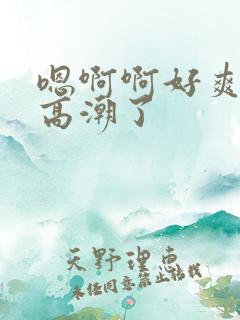 嗯啊啊好爽
高潮了
天野理惠
未经同意禁止转载